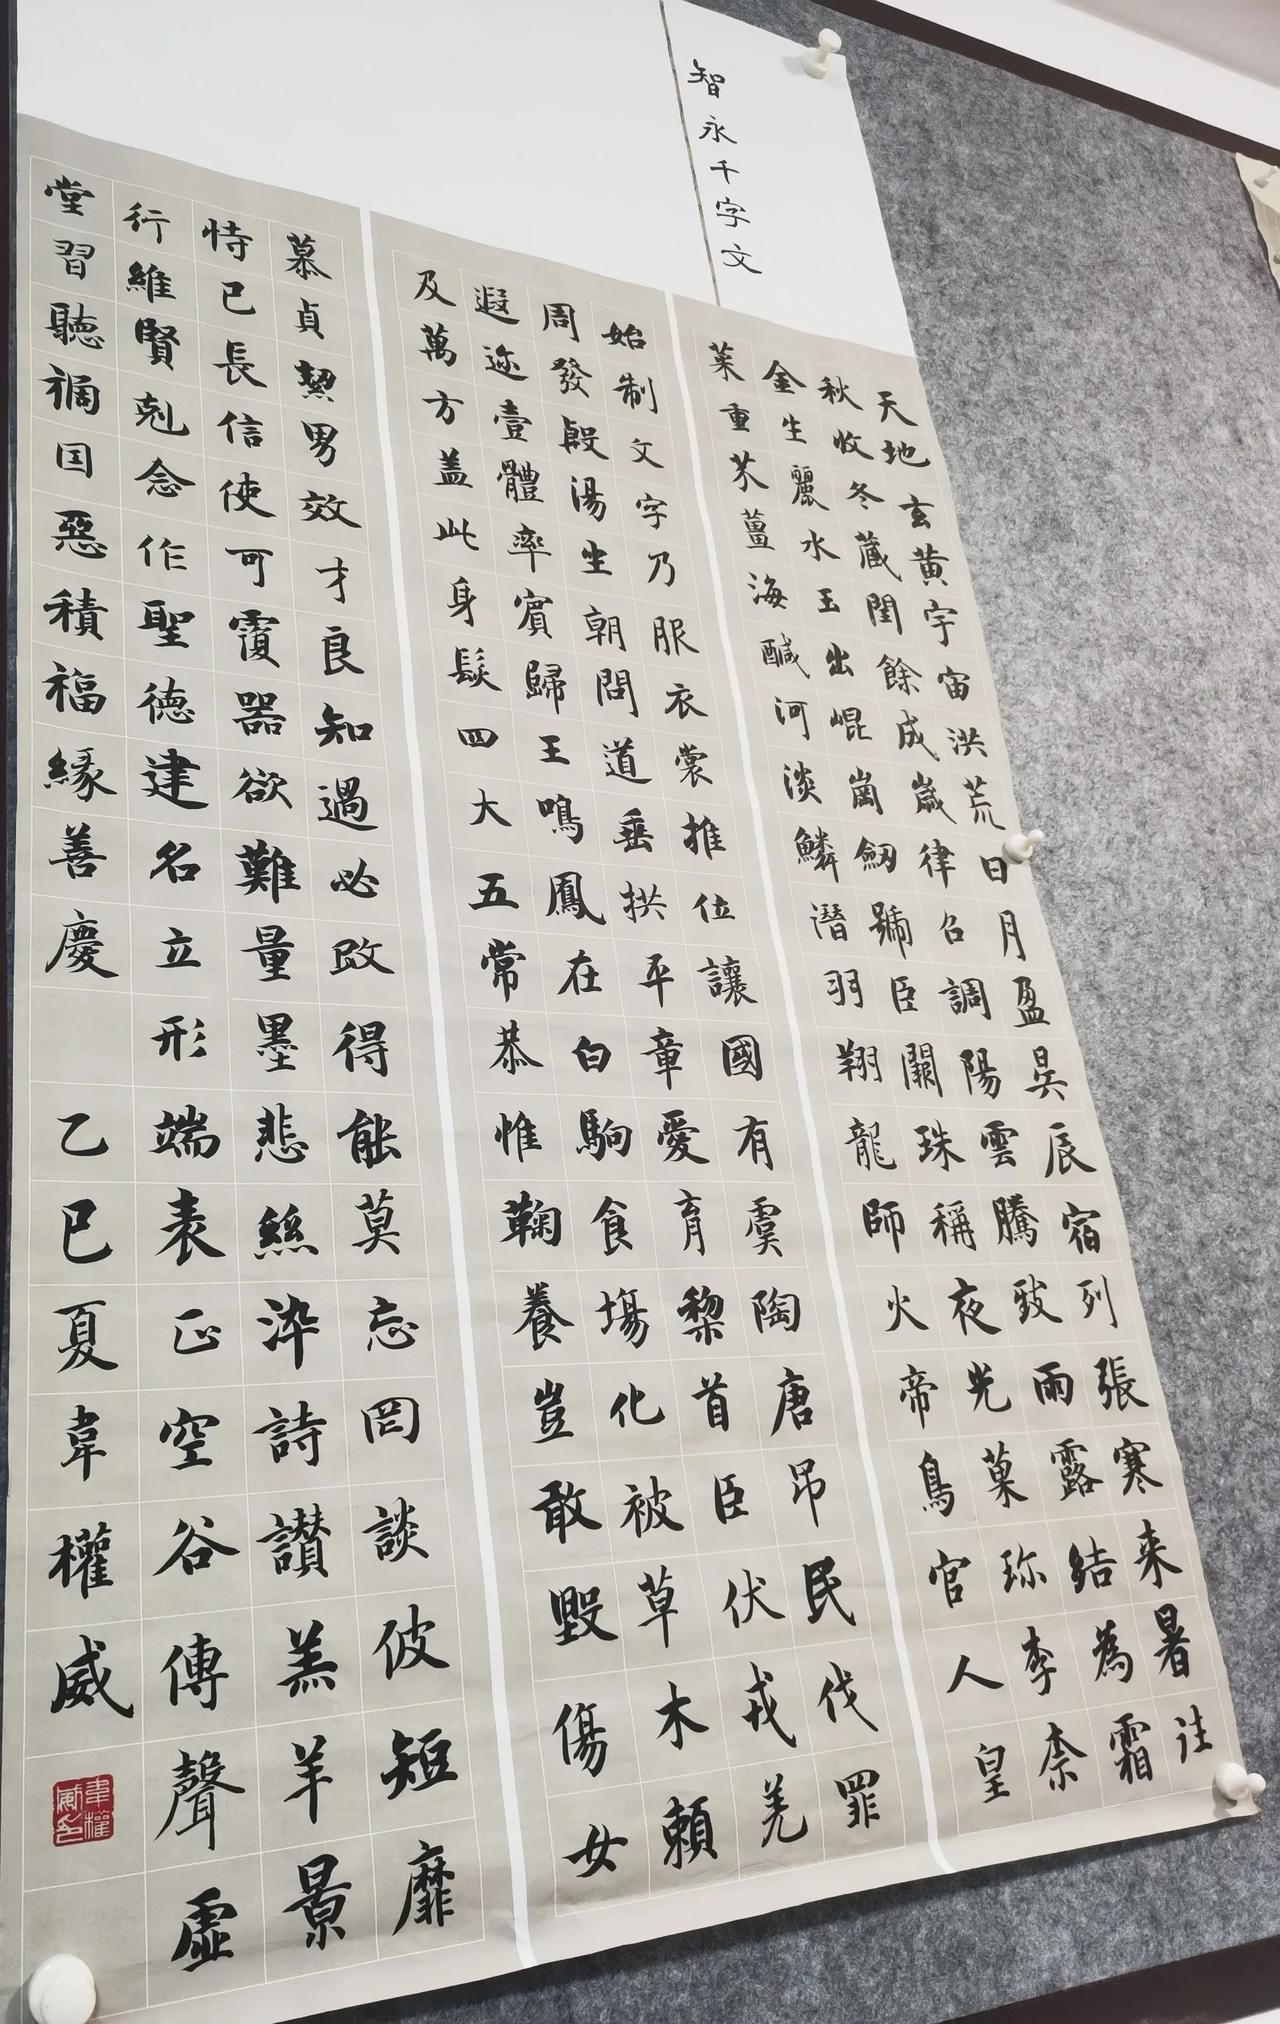 智永千字文
天地玄黄宇宙洪荒日月盈昃辰宿列張寒来暑往
秋收冬蔵閏餘成歲律召調陽雲騰致雨露結為霜
金生麗水玉出崐崗劒號臣闕珠稱夜光菓珎李柰
菜重芥薑海醎河淡鱗潛羽翔龍師火帝鳥官人皇
始制文字乃服衣裳推位讓國有虞陶唐吊民伐罪
周發殷湯坐朝問道垂拱平章愛育黎首臣伏戎羌
遐迩壹體率賓歸王鳴鳳在白駒食塲化被草木賴
及萬方盖此身髮四大五常恭惟鞠養豈敢毀傷女
慕貞絜男效才良知過必改得能莫忘罔談彼短靡
恃己長信使可覆器欲難量墨悲絲染詩讚羔羊景
行維賢剋念作聖德建名立形端表正空谷傳聲虛
堂習聽禍因惡積福緣善慶 乙巳夏韋權威
韋權威印